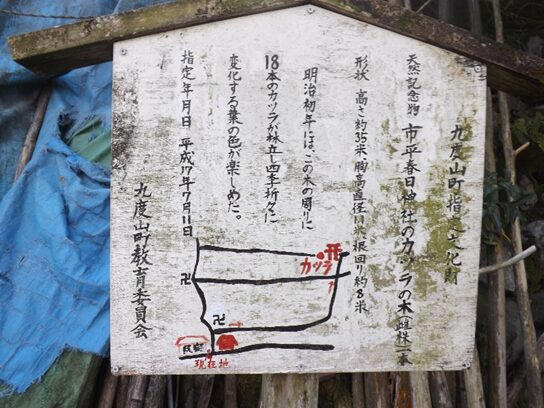 九度山町指定文化財
天然記念物 市平春日神社のカツラの木(雌株)一本
形状 高さ約35米胸高直径1.1米根回り約8米
明治初年には、この木の周りに
18本のカツラが林立し四季折々に
変化する葉の色が楽しめた。
指定年月日 平成17年7月11日
九度山町教育委員会
カツラ
卍
卍
現在地